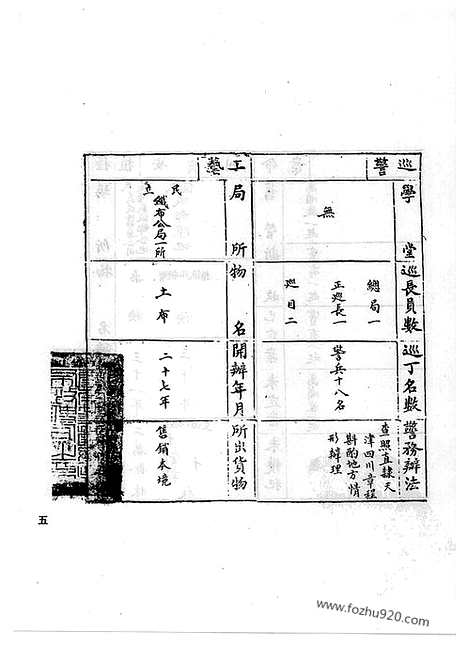 巡警
學堂
巡長員數
巡丁名數
警務辦法
無
總局一
正巡長一
巡目二
警兵十八名
查照直隸天
津四川章程
斟酌地方情
形辦理
工藝
局所
物名
開辦年月
所出貨物
民立
織布公局一所
土布
二十七年
售銷本境
五
www.fozhu920.com